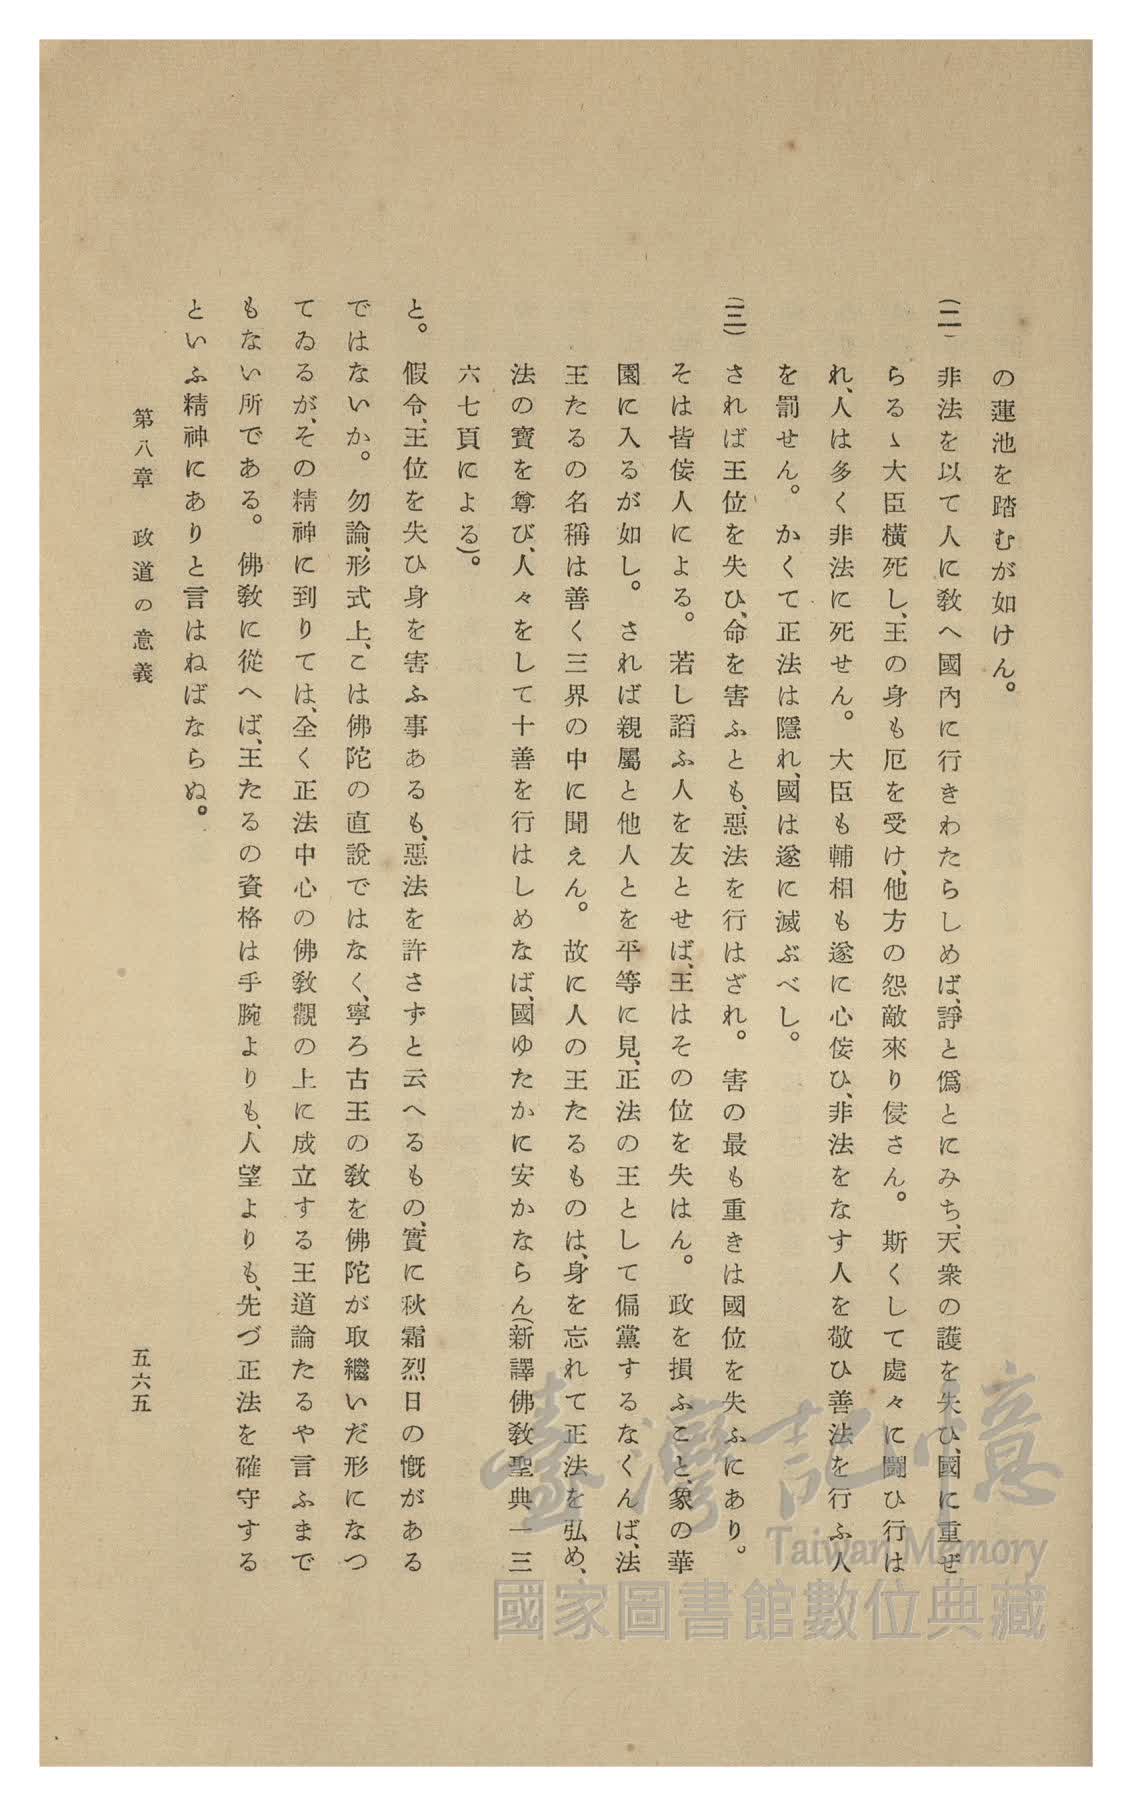 の蓮池を踏むが如けん。
(二) 非法を以て人に教へ國內に行きわたらしめば、諍と僞とにみち、天衆の護を失ひ、國に重ぜ
らるゝ大臣橫死し、王の身も厄を受け、他方の怨敵來り侵さん。斯くして處々に鬪ひ行は
れ、人は多く非法に死せん。大臣も輔相も遂に心侫ひ、非法をなす人を敬ひ善法を行ふ人
を罰せん。かくて正法は隱れ、國は遂に滅ぶべし。
(三) されば王位を失ひ、命を害ふとも、惡法を行はざれ。害の最も重きは國位を失ふにあり。
そは皆侫人による。若し謟ふ人を友とせば、王はその位を失はん。政を損ふこと、象の華
園に入るが如し。されば親屬と他人とを平等に見、正法の王として偏黨するなくんば、法
王たるの名稱は善く三界の中に聞えん。故に人の王たるものは、身を忘れて正法を弘め、
法の寶を尊び、人々をして十善を行はしめなば、國ゆたかに安かならん(新譯佛敎聖典一三
六七頁による)。
と。假令、王位を失ひ身を害ふ事あるも、惡法を許さずと云へるもの、實に秋霜烈日の慨がある
ではないか。勿論、形式上、こは佛陀の直說ではなく、寧ろ古王の敎を佛陀が取繼いだ形になつ
てゐるが、その精神に到りては、全く正法中心の佛敎觀の上に成立する王道論たるや言ふまで
もない所である。佛敎に從へば、王たるの資格は手腕よりも、人望よりも、先づ正法を確守する
といふ精神にありと言はねばならぬ。
第八章 政道の意義
五六五
臺灣記憶
Taiwan Memory
國家圖書館數位典藏